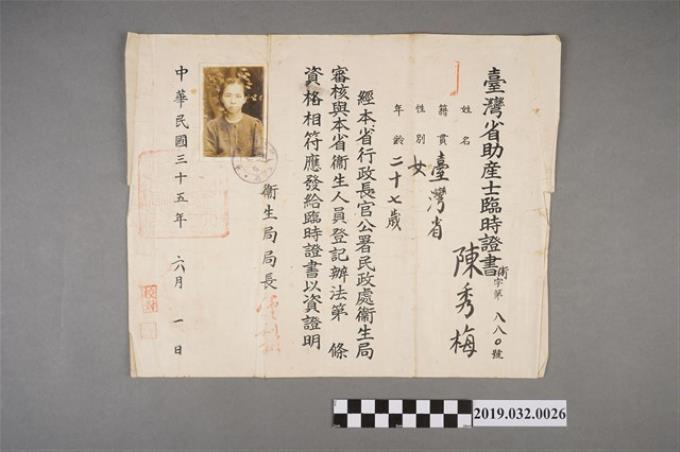 臺灣省助產士臨時證書
衛字第八八〇號
姓名 陳秀梅
籍貫 臺灣省
性別 女
年齡 二十七歲
經本省行政長官公署民政處衛生局
審核與本省衛生人員登記辦法第 條
資格相符應發給臨時證書以資證明
衛生局局長
中華民國三十五年 六月 一日
校對
2019.032.0026